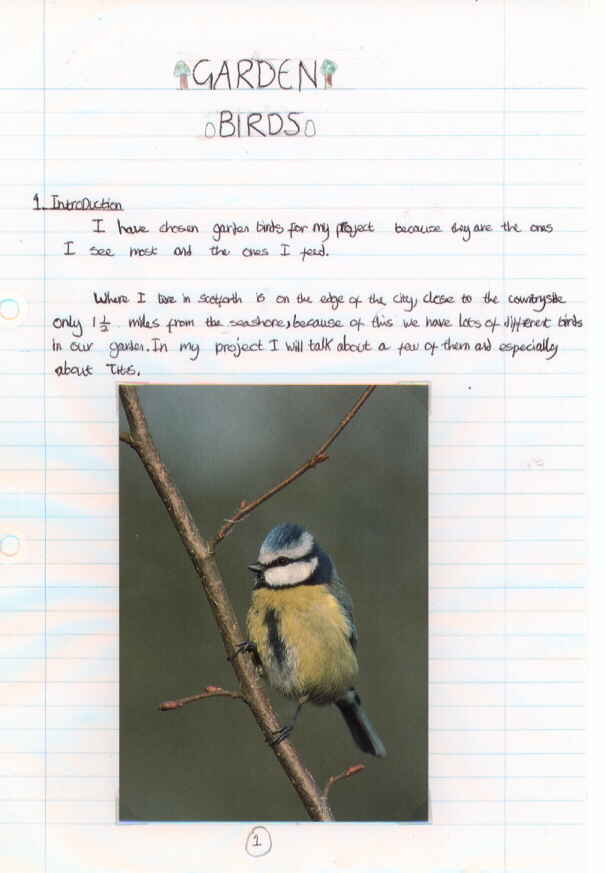 GARDEN
BIRDS
1. Introduction
I have chosen garden birds for my project because they are the ones
I see most and the ones I feed.
Where I live in Scotforth is on the edge of the city, close to the countryside
only 1 1/2 miles from the seashore, because of this we have lots of different birds
in our garden. In my project I will talk about a few of them and especially
about Tits.
1